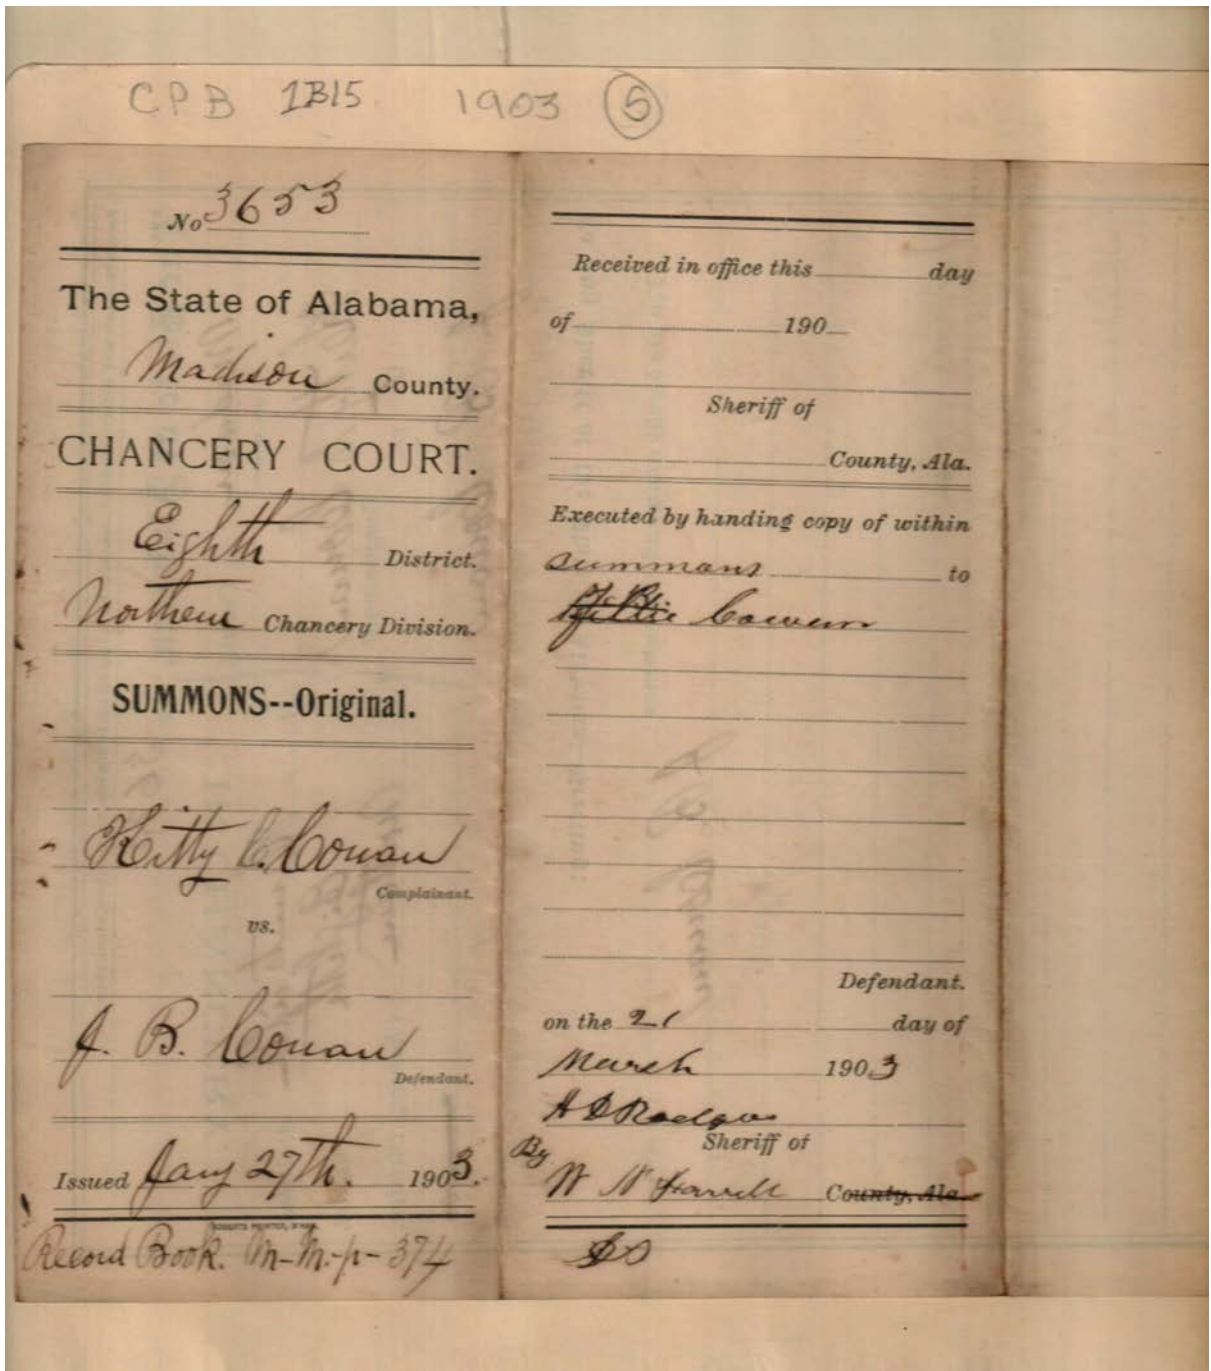 CPB 1B15 1903 5
No 3653
The State of Alabama,
Madison County.
CHANCERY COURT.
Eighth District.
Northern Chancery Division.
SUMMONS--Original.
Kitty C. Conan
Complainant.
vs.
J. B. Conan
Defendant.
Issued Jany 27th. 1903.
Record Book. M-M.-p-374
Received in office this day
of 190
Sheriff of
County, Ala.
Executed by handing copy of within
summans to
Cowen
Defendant.
on the 21 day of
March 1903
A D Rodgers
Sheriff of
By
W N County, Ala.
DS